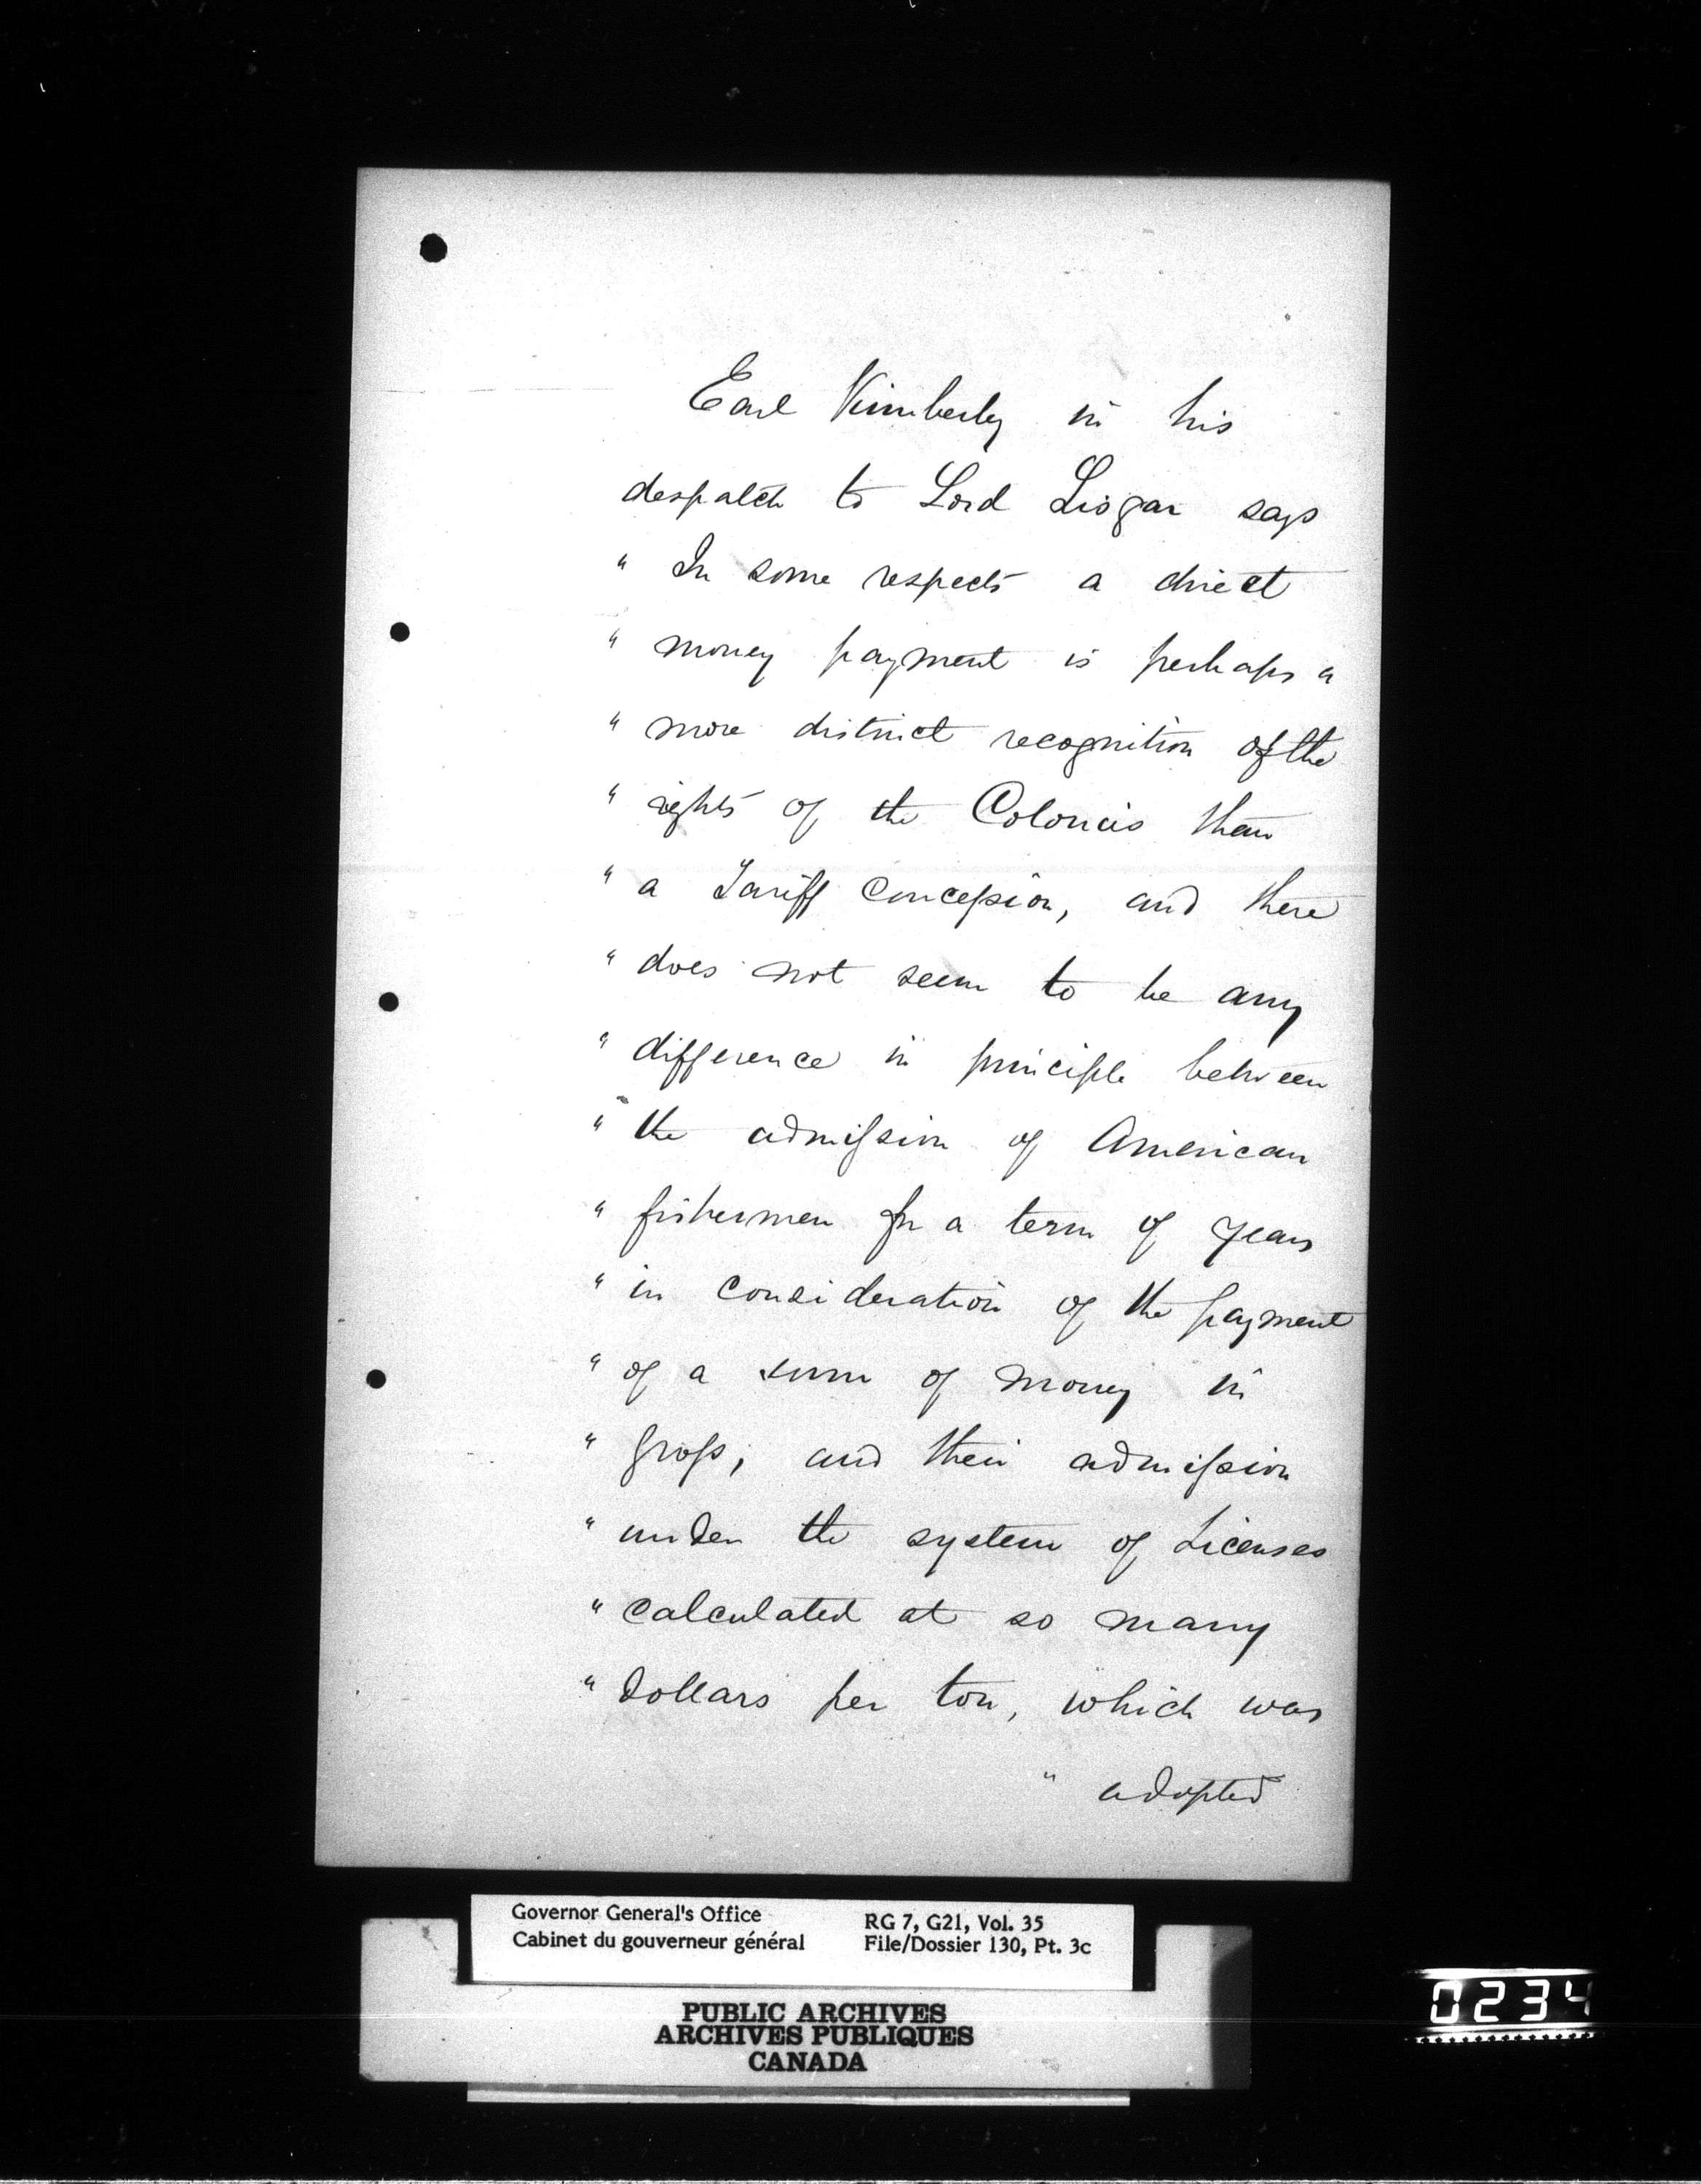 Earl Kimberly in his
despatch to Lord Lisgar says
" In some respects a direct
" money payment is perhaps a
" more distinct recognition of the
" rights of the Colonies than
" a Tariff Concession, and there
" does not seem to be any
" difference in principle between
" the admission of American
" fishermen for a term of years
" in consideration of the payment
" of a sum of money in
" gross, and their admission
" under the system of Licenses
" calculated at so many
" dollars per ton, which was
" adopted
Governor General's Office
Cabinet du gouverneur général
RG 7, G21, Vol. 35
File/Dossier 130, Pt. 3c
PUBLIC ARCHIVES
ARCHIVES PUBLIQUES
CANADA
0234